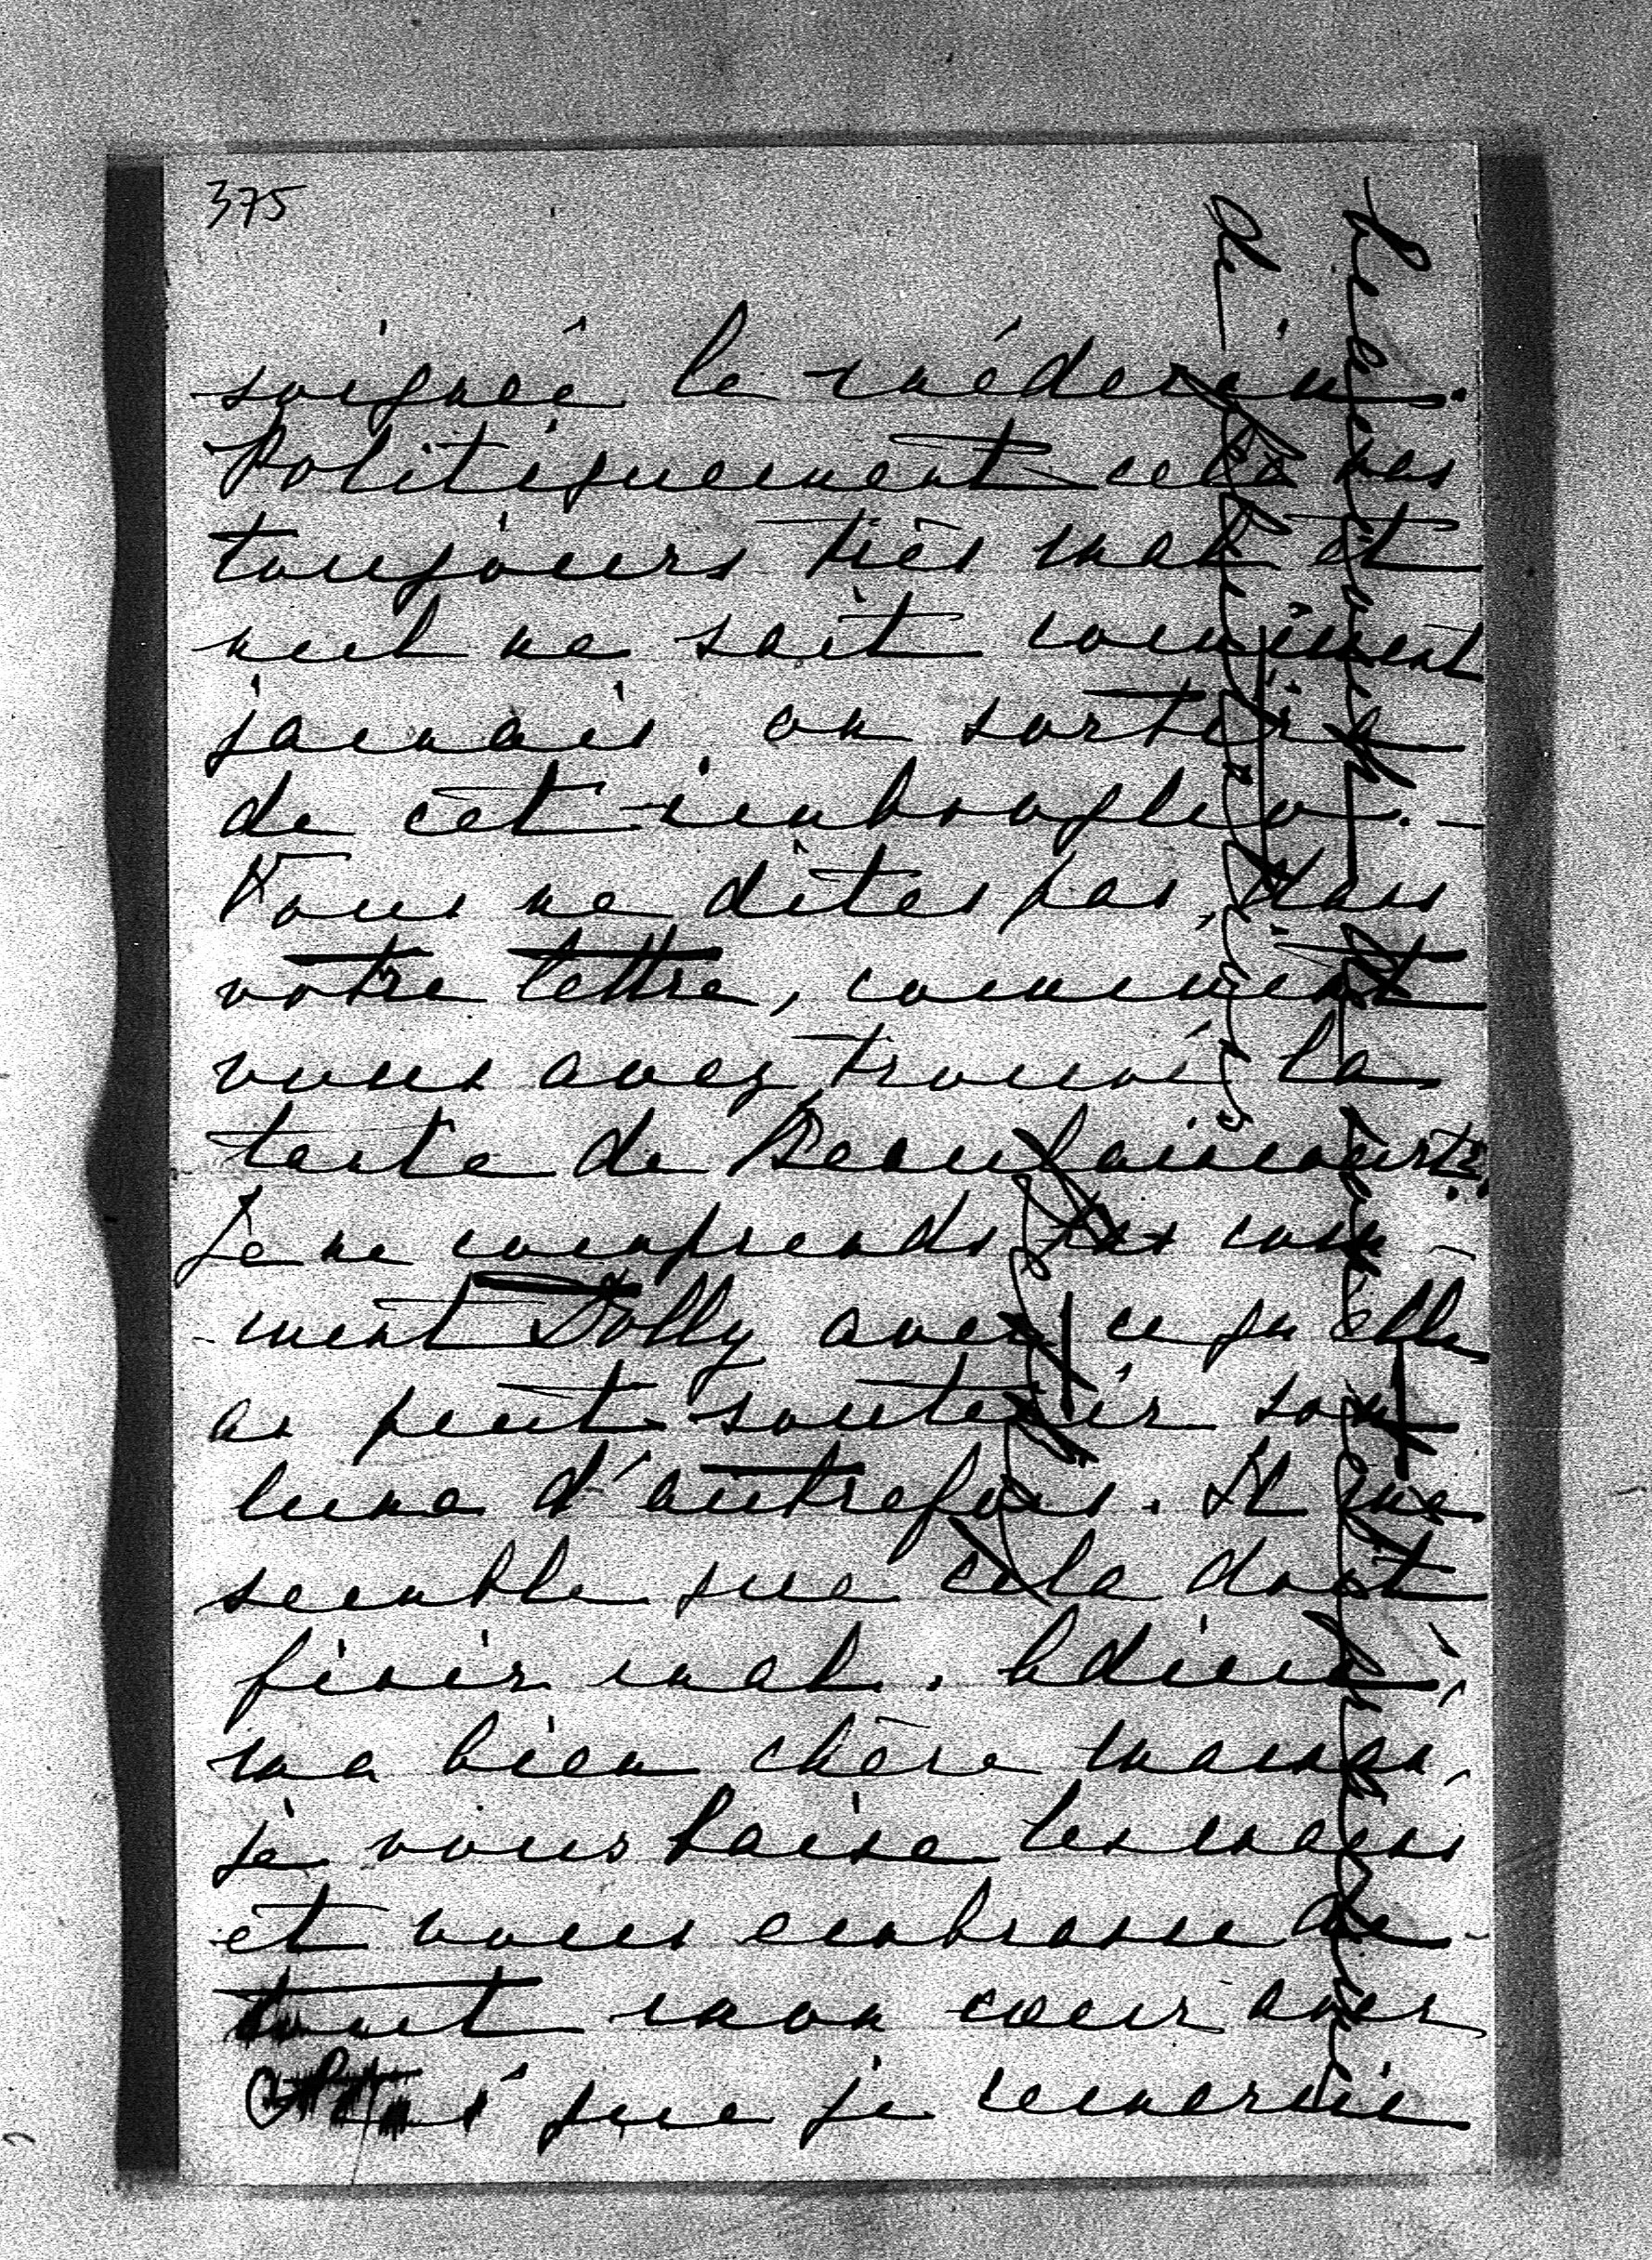 375
soignée le médecin.
Politiquement cela va
toujours très mal et
nul ne sait comment
jamais on sortira
de cet imbroglio. —
Vous ne dites pas, dans
votre lettre, comment
vous avez trouvé la
tante de Beaulaincourt?
Je ne comprends pas com-
ment Dolly avec ce qu'elle
a peut soutenir son
luxe d'autrefois. Il me
semble que cela doit
finir mal. Adieu,
ma bien chère maman,
je vous baise les mains
et vous embrasse de
tout mon cœur avec
que je remercie